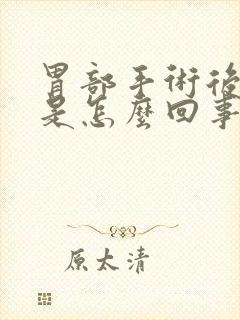 胃部手術後
是怎麼回事
原太清